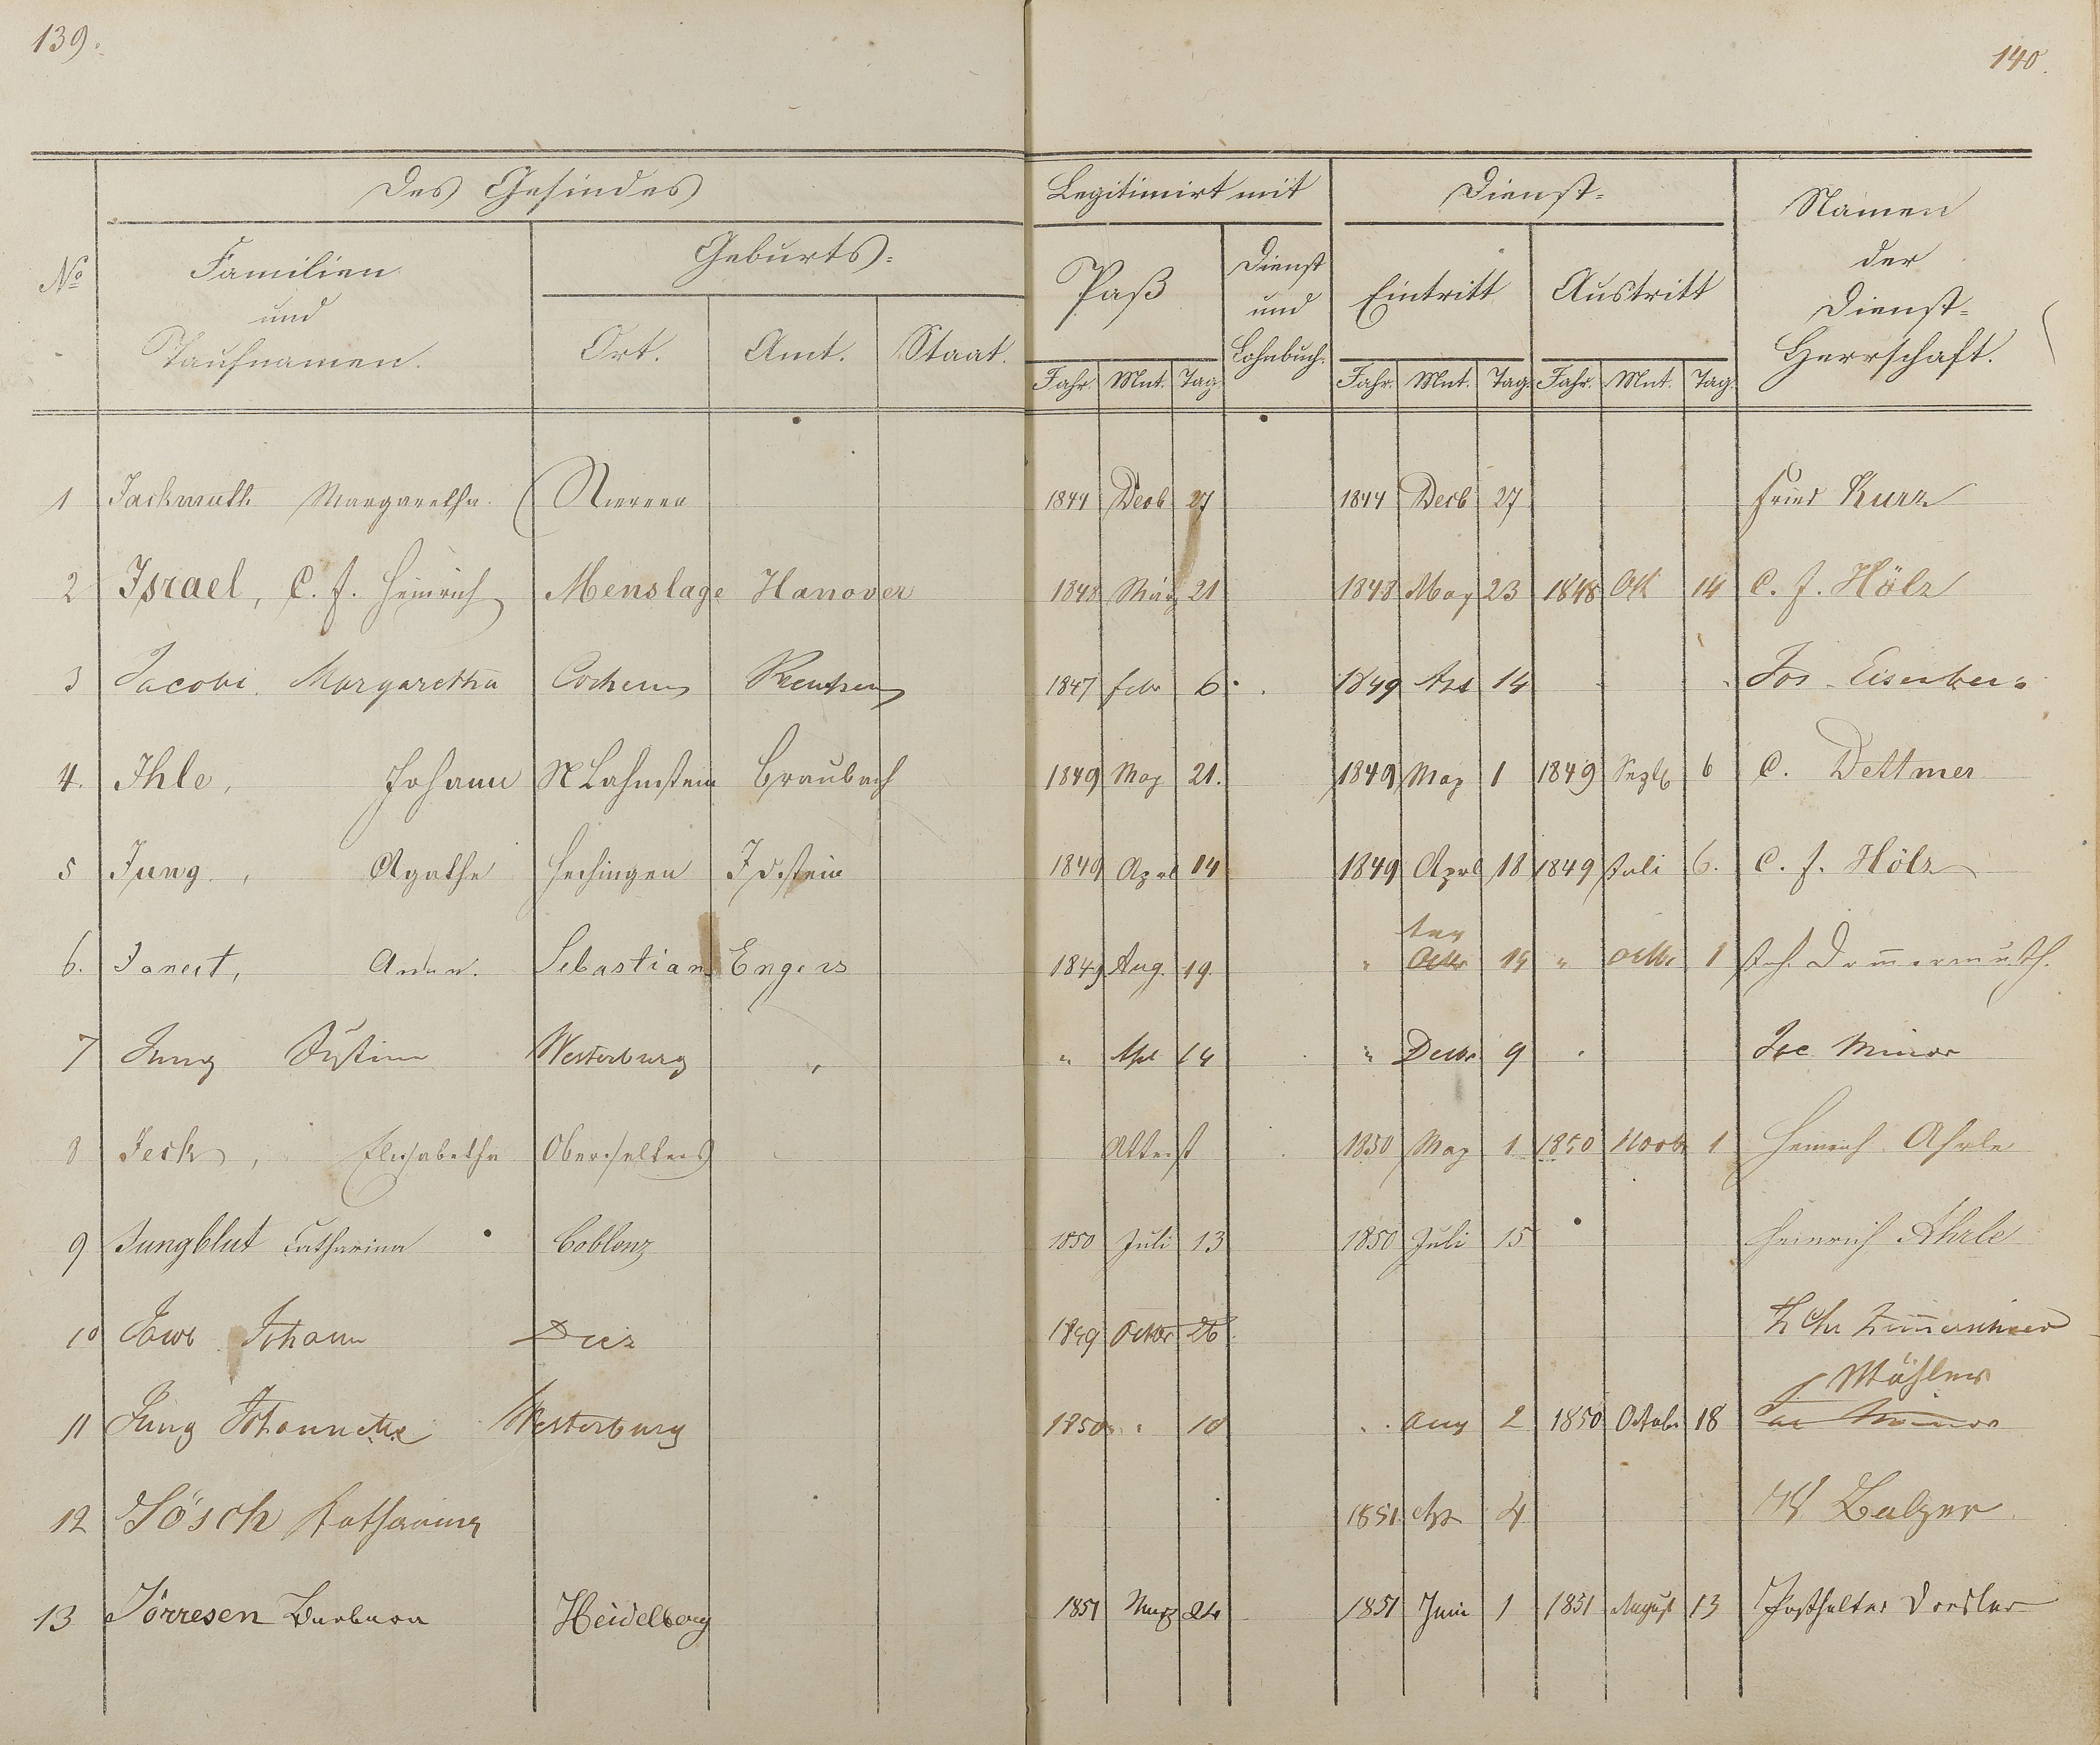 139.
140.
Des Gesindes
Legitimirt mit
Dienst-
Namen
der
Dienst-
Herrschaft.
No
Familien
und
Taufnamen.
Geburts-
Ort. Amt. Staat.
Paß
Dienst
und
Lohnbuch.
Eintritt Austritt
Jahr. Mnt. Tag. Jahr. Mnt. Tag. Jahr. Mnt. Tag.
1 Jackmuth Margaretha. 1844 Decb 27 1844 Decb 27 Fried Kurz
2 Israel, C. J. Heinrich Menslage Hanover 1848 März 21 1848 May 23 1848 Okt 14 C. J. Hölz
3 Jacobi. Margaretha Cochem Preußen 1847 febr 6 1849 14 Jos. Eisenber
4. Ihle, Johann N Lahnstein Braubach 1849 May 21. 1849 May 1 1849 Septb 6 C. Dettmer
5 Jung, Agathe Idstein 1849 Aprl 14 1849 Aprl 18 1849 Juli 6. C. J. Hölz
6. Sebastian Engers 1849 Aug. 19. " Aug Octbr " Octbr 1
7 Jung Justina Westerburg " " Apl 14 " Decbr 9 " Minor
8 Jeck, Elisabetha Oberselters Attest 1850 May 1 1850 Novbr 1 Heinrich Ahrle
9 Jungblut Catharina Coblenz 1850 Juli 13 1850 Juli 15 Heinrich Ahrle
10 Johann Diez 1849 Octbr 26.
11 Jung Johannette Westerburg 1850 " 10 " Aug 2 1850 Octobr 18 Minor
12 Jösch Katharina 1851 4 Balzer
13 Jörresen Barbara Heidelberg 1851 März 24 1851 Juni 1 1851 August 13 Posthalter